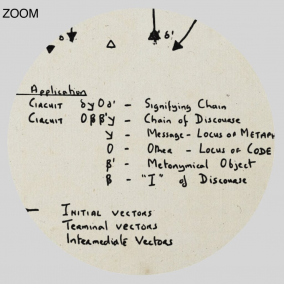 ZOOM
δ'
Δ
Application
CIRCUIT δ γ O δ' - Signifying Chain
CIRCUIT O β β' γ - Chain of Discourse
γ - Message - Locus of METAP
O - Other - Locus of CODE
β' - Metonymical Object
β - "I" of Discourse
— INITIAL VECTORS
Terminal vectors
Intermediate Vectors